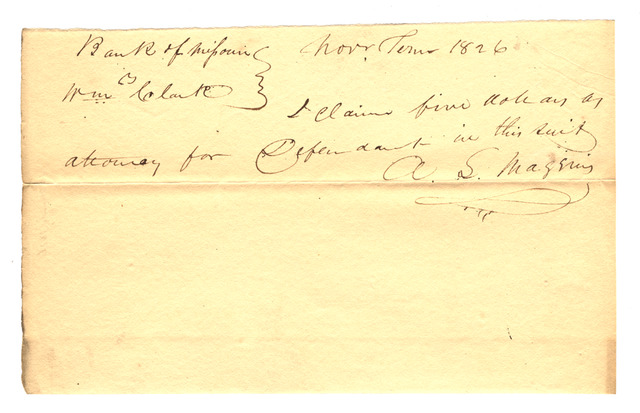 Bank of Missouri } Novr Term 1826
vs
Wm Clark }
I claim five dollars as
attorney for Defendant in this suit
A. L. Magenis